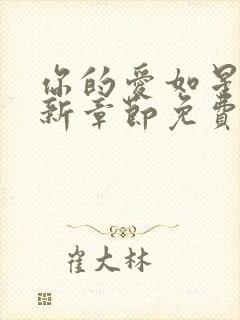 你的愛如星
新章節免費
崔大林